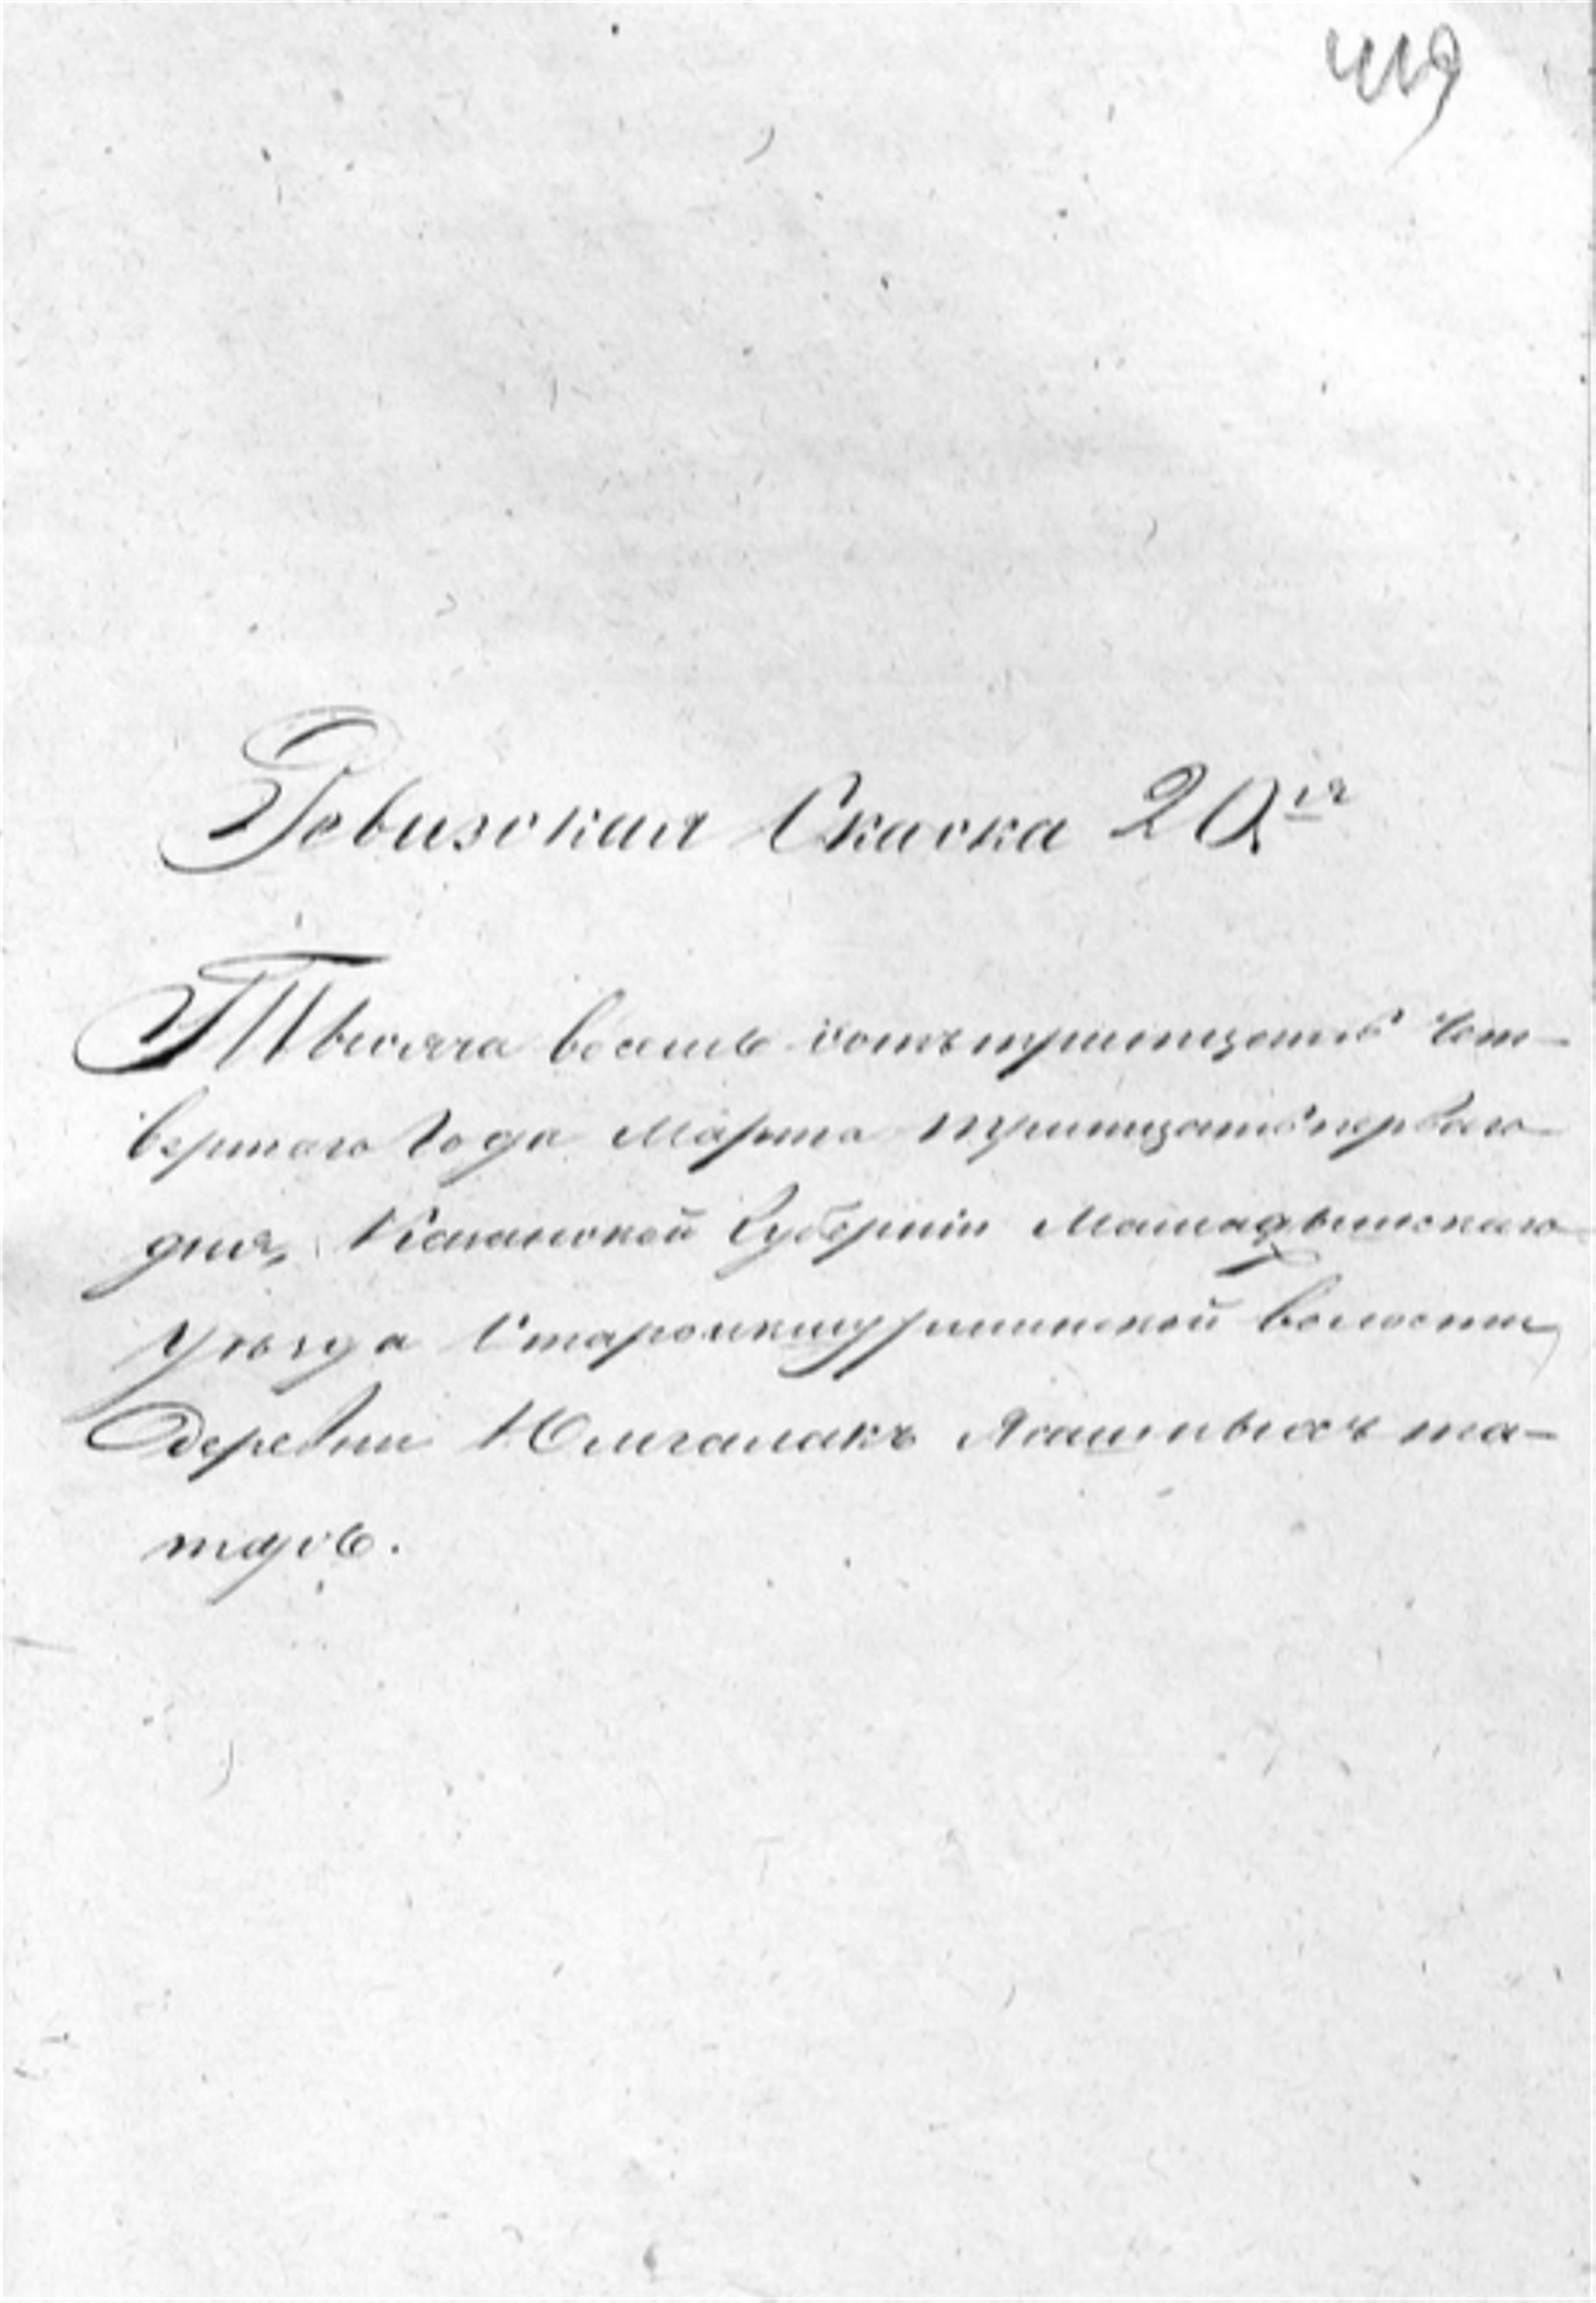 419
Ревизская Скаска 20ія
Тысяча восемь сотъ тритцать чет-
вертаго Года Марта тритцать перваго
дня, Казанской Губерніи Мамадышскаго
уѣзда Старо волости
Деревни Юлгамакъ Ясашныхъ та-
таръ.